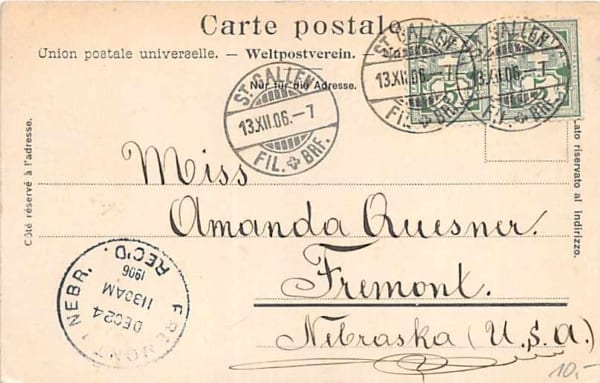 Carte postale
Union postale universelle. — Weltpostverein.
Nur für die Adresse.
ST. GALLEN
13.XII.06.-7
FIL. BRF.
ST. GALLEN
13.XII.06.-7
FIL. BRF.
5
ST. GALLEN
13.XII.06.-7
FIL. BRF.
5
Côté réservé à l'adresse.
Lato riservato al indirizzo.
Miss
Amanda Quesner.
Fremont.
Nebraska (U.S.A.)
FREMONT NEBR.
DEC 24
1130AM
1906
REC'D.
10,-